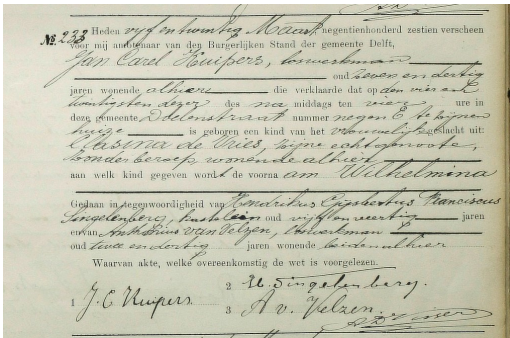 No. 233
Heden vijf en twintig Maart negentienhonderd zestien verscheen
voor mij ambtenaar van den Burgerlijken Stand der gemeente Delft,
Jan Carel Kuipers, loswerkman
oud zeven en dertig
jaren wonende alhier die verklaarde dat op den vier en
twintigsten dezer des na middags ten vier ure in
deze gemeente nummer negen te zijnen
huize is geboren een kind van het vrouwelijk geslacht uit:
Casina de Vries, zijne echtgenoote,
zonder beroep, wonende alhier
aan welk kind gegeven wordt de voorna am Wilhelmina
Gedaan in tegenwoordigheid van Hendrikus Gijsbertus Franciscus
Singelenberg, oud vijf en veertig jaren
en van Antonius van Velzen, loswerkman
oud twee en dertig jaren wonende beiden alhier
Waarvan akte, welke overeenkomstig de wet is voorgelezen.
1 J. C. Kuipers
2 H. Singelenberg.
3 A v. Velzen.